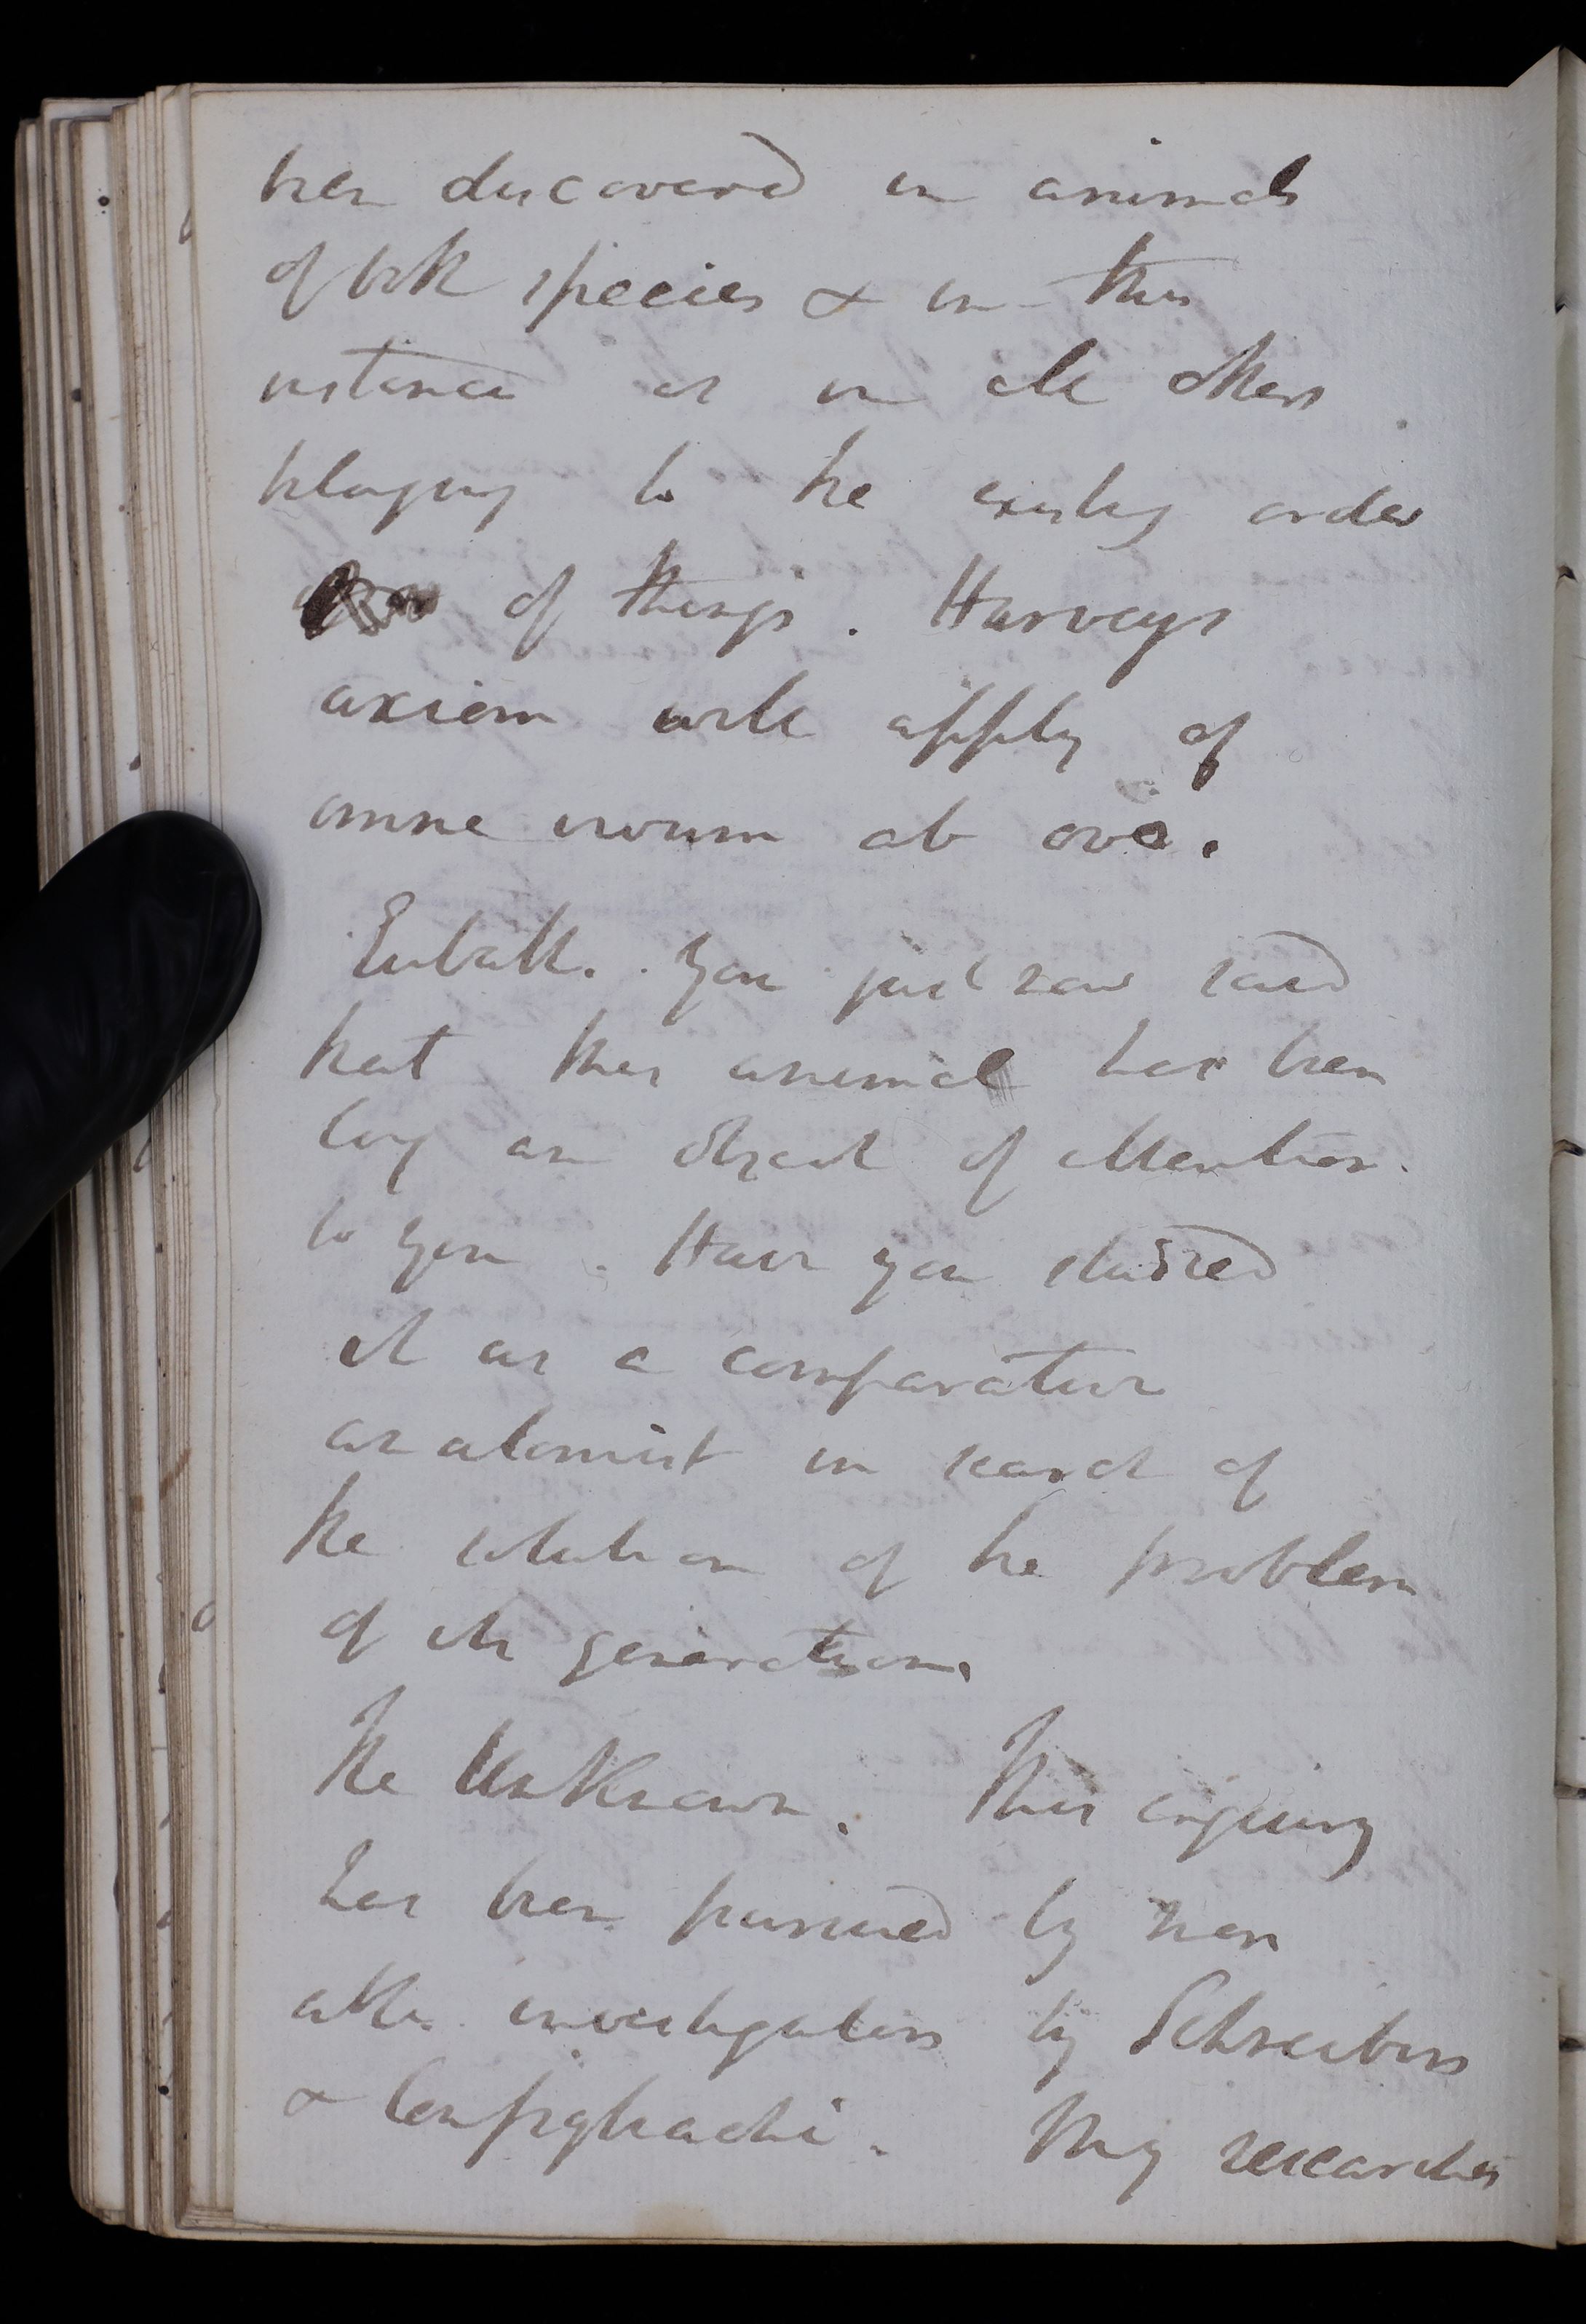 been discovered in animals
of both species & in this
instance as in all others
belonging to the existing order
of things. Harveys
axiom will apply of
omne vivum ab ovo.
Eubath. You just now said
that this animal has been
long an object of attention
to you. Have you studied
it as a comparative
anatomist in search of
the solution of the problem
of its generation.
The Unknown. This enquiry
has been pursued by men
able investigators by Schreibers
& Configliachi. My researches